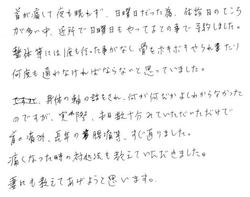 首が痛くて夜も眠れず、日曜日だった為、休診日のところ
が多い中、近所で日曜日もやってるとの事で予約しました。
整体等には1度も行った事がなく骨をボキボキやられ事だり
何度も通わなければならないと思っていました。
身体の軸の話をされ、何が何だかよくわからなかった
のですが、実際、本日数十分みていただいただけで
首の痛み、長年の腰痛等、すぐ直りました。
痛くなった時の対処法も教えていただきました。
妻にも教えてあげようと思います。